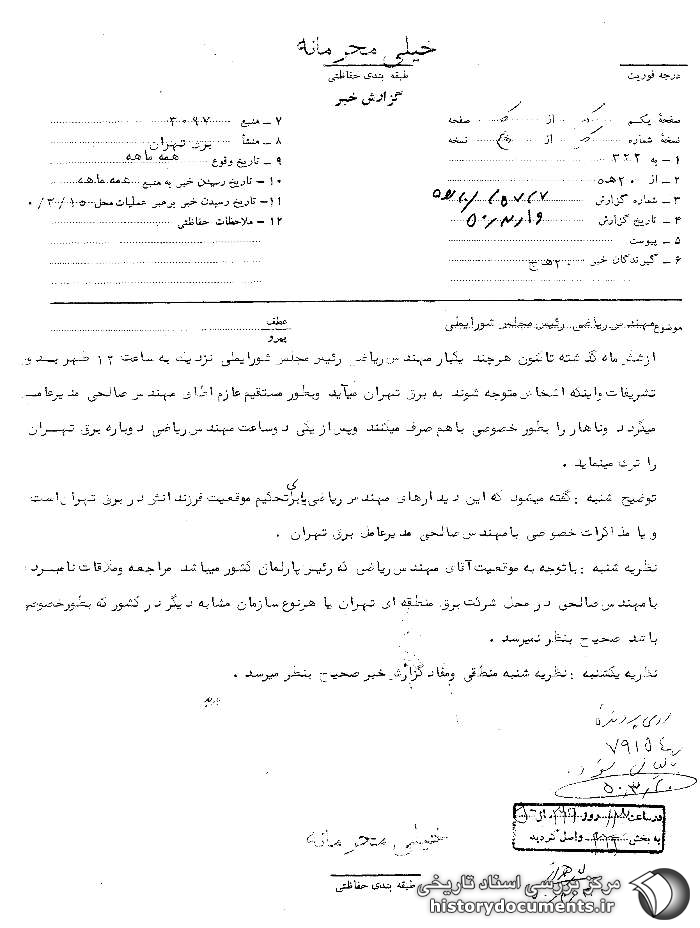 خیلی محرمانه
طبقه بندی حفاظتی
گزارش خبر
درجه فوریت
صفحهٔ یکم از صفحه
نسخهٔ شماره از نسخه
۱ – به ۳۲۲
۲ – از ۲۰ هـ ۵
۳ – شماره گزارش
۴ – تاریخ گزارش
۵ – پیوست
۶ – گیرندگان خبر
۷ – منبع ۳۰۹۷
۸ – منشأ برق تهران
۹ – تاریخ وقوع همه ماهه
۱۰ – تاریخ رسیدن خبر به منبع همه ماهه
۱۱ – تاریخ رسیدن خبر برهبر عملیات محل ۰/۳/۱۵
۱۲ – ملاحظات حفاظتی
موضوع مهندس ریاضی رئیس مجلس شورایملی
عطف
پیرو
از شش ماه گذشته تاکنون هرچند یکبار مهندس ریاضی رئیس مجلس شورایملی نزدیک به ساعت ۱۲ ظهر بدون
تشریفات واینکه اشخاص متوجه شوند به برق تهران میآید وبطور مستقیم عازم اطاق مهندس صالحی مدیرعامل
میگردد وناهار را بطور خصوصی باهم صرف میکنند وپس از یکی دوساعت مهندس ریاضی دوباره برق تهران
را ترک مینماید .
توضیح شنبه : گفته میشود که این دیدارهای مهندس ریاضی یا برای تحکیم موقعیت فرزندانش در برق تهران است
و یا مذاکرات خصوصی با مهندس صالحی مدیرعامل برق تهران .
نظریه شنبه : باتوجه به موقعیت آقای مهندس ریاضی که رئیس پارلمان کشور میباشد مراجعه وملاقات نامبرده
با مهندس صالحی در محل شرکت برق منطقه ای تهران یا هرنوع سازمان مشابه دیگر در کشور که بطور خصوصی
باشد صحیح بنظر نمیرسد .
نظریه یکشنبه : نظریه شنبه منطقی ومفاد گزارش خبر صحیح بنظر میرسد .
روی پرونده
۷۹۱۵۴
در ساعت روز
به بخش واصل گردید
خیلی محرمانه
طبقه بندی حفاظتی
مرکز بررسی اسناد تاریخی
historydocuments.ir